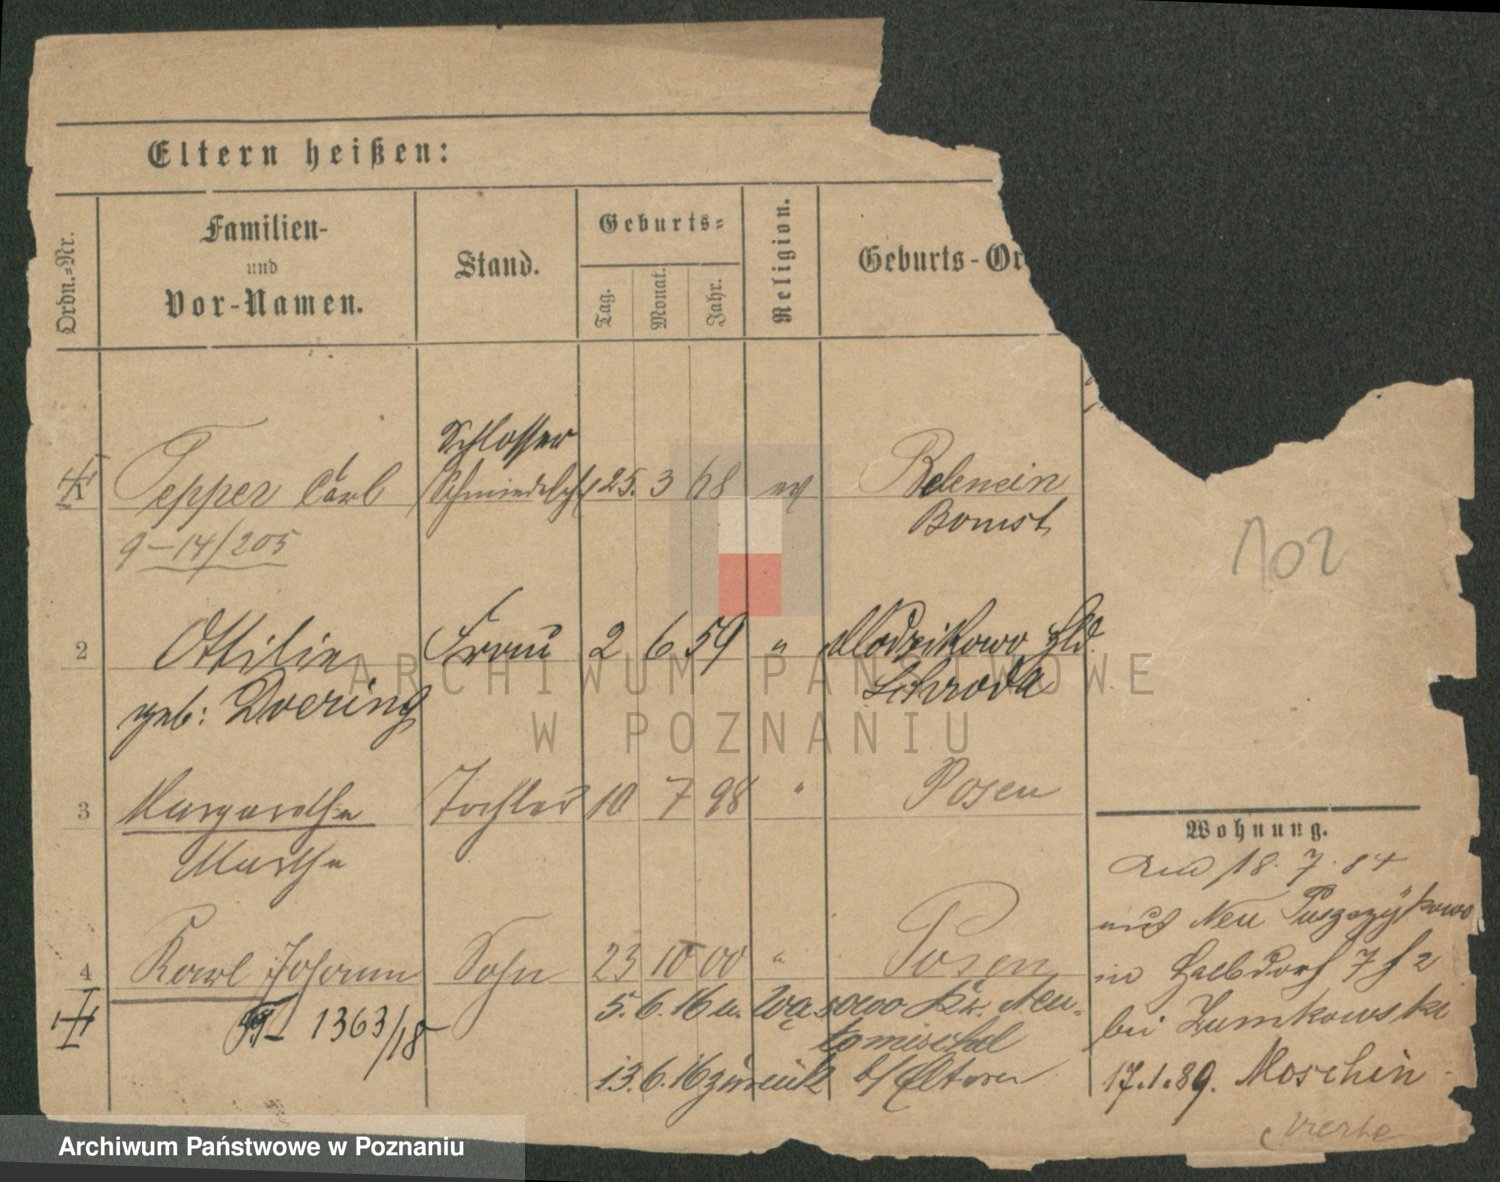 Eltern heißen:
Ordn.-Nr.
Familien-
und
Vor-Namen.
Stand.
Geburts-
Tag.
Monat.
Jahr.
Religion.
Geburts-Or
Schlosser
Tepper Carl
25. 3 68 ev
Bomst
9-14/205
102
2 Ottilie Frau 2 6 59 " Mlodzikowo Hld.
geb: Doering Schroda
3 Margarethe Tochter 10 7 98 " Posen
Martha
4 Karl Johann Sohn 23 10 00 " Posen
1363/18
5.6.16 n. Wąsowo Kr. Neu-
tomischel
13.6.16 zurück b/ Eltern
Wohnung.
18.7.84
aus Neu Puszczykowo
in Halbdorf 7 f 2
bei Zumkowski
17.1.89. Moschin
ARCHIWUM PAŃSTWOWE
W POZNANIU
Archiwum Państwowe w Poznaniu